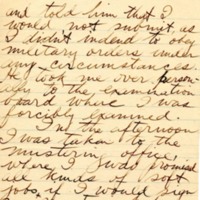 and told him that I
would not submit, as
I didn't intend to obey
military orders under
any circumstances.
He took me over person-
ally to the examination
board where I was
forcibly examined.
In the afternoon
I was taken to the
mustering office
where I was promised
all kinds of soft
jobs if I would sign